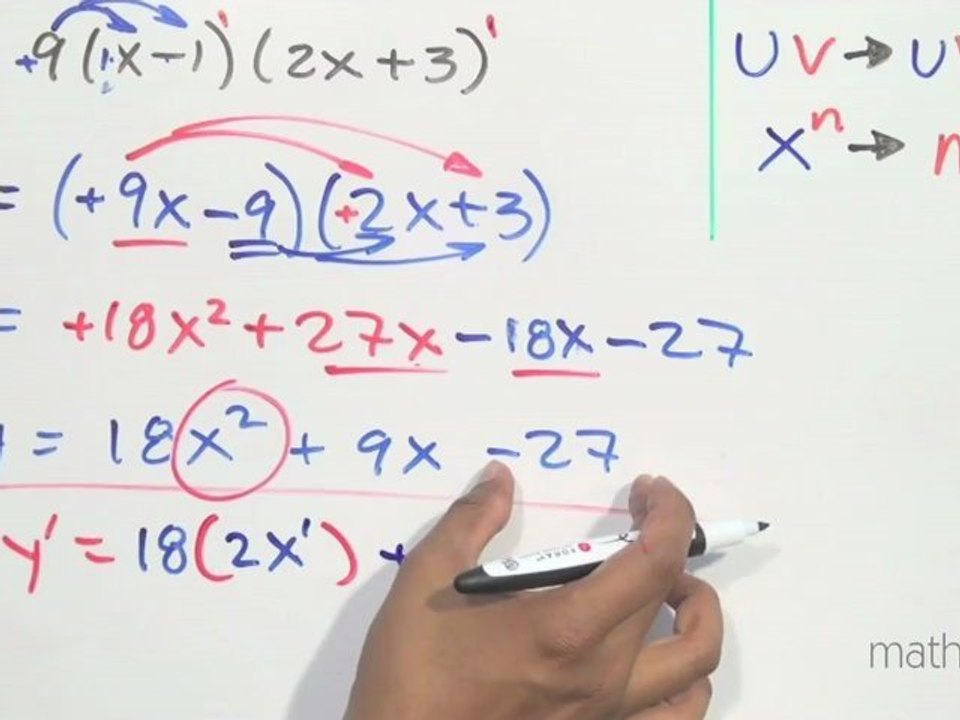 +9(1x-1)¹(2x+3)¹
= (+9x-9)(+2x+3)
= +18x²+27x-18x-27
= 18x²+9x-27
y' = 18(2x') +
UV → U
xⁿ → n
math